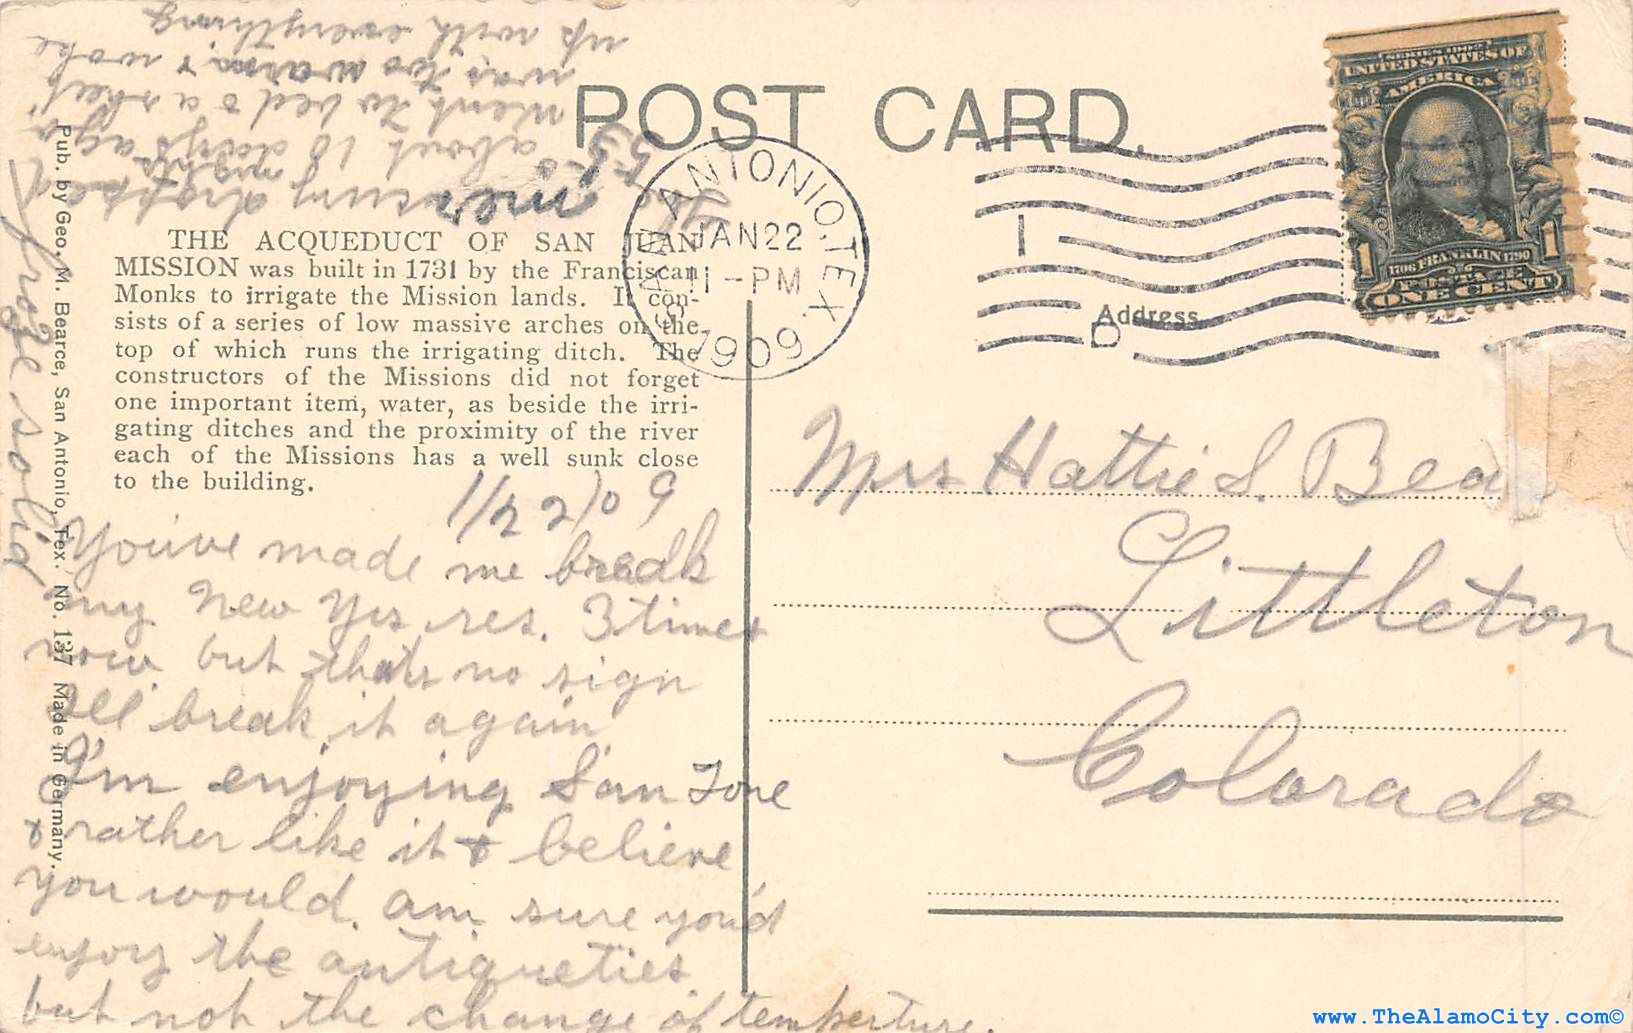 POST CARD.
SAN ANTONIO, TEX.
JAN 22
11-PM
1909
1
D
SERIES 1902
UNITED STATES OF
AMERICA
1 1
1706 FRANKLIN 1790
ONE CENT
Address
THE ACQUEDUCT OF SAN JUAN
MISSION was built in 1731 by the Franciscan
Monks to irrigate the Mission lands. It con-
sists of a series of low massive arches on the
top of which runs the irrigating ditch. The
constructors of the Missions did not forget
one important item, water, as beside the irri-
gating ditches and the proximity of the river
each of the Missions has a well sunk close
to the building.
Pub. by Geo. M. Bearce, San Antonio, Tex. No. 137 Made in Germany.
Mrs Hattie S. Bea
Littleton
Colorado
1/22/09
You've made me break
my New Yrs res. 3 times
now but thats no sign
I'll break it again
I'm enjoying San Tone
& rather like it & believe
you would. am sure you'd
enjoy the antiqueties
but not the change of temperture.
about 10 days ago
nights
went to bed & a sheet
was too warm & woke
up with everything
froze solid
mercury dropped
www.TheAlamoCity.com©